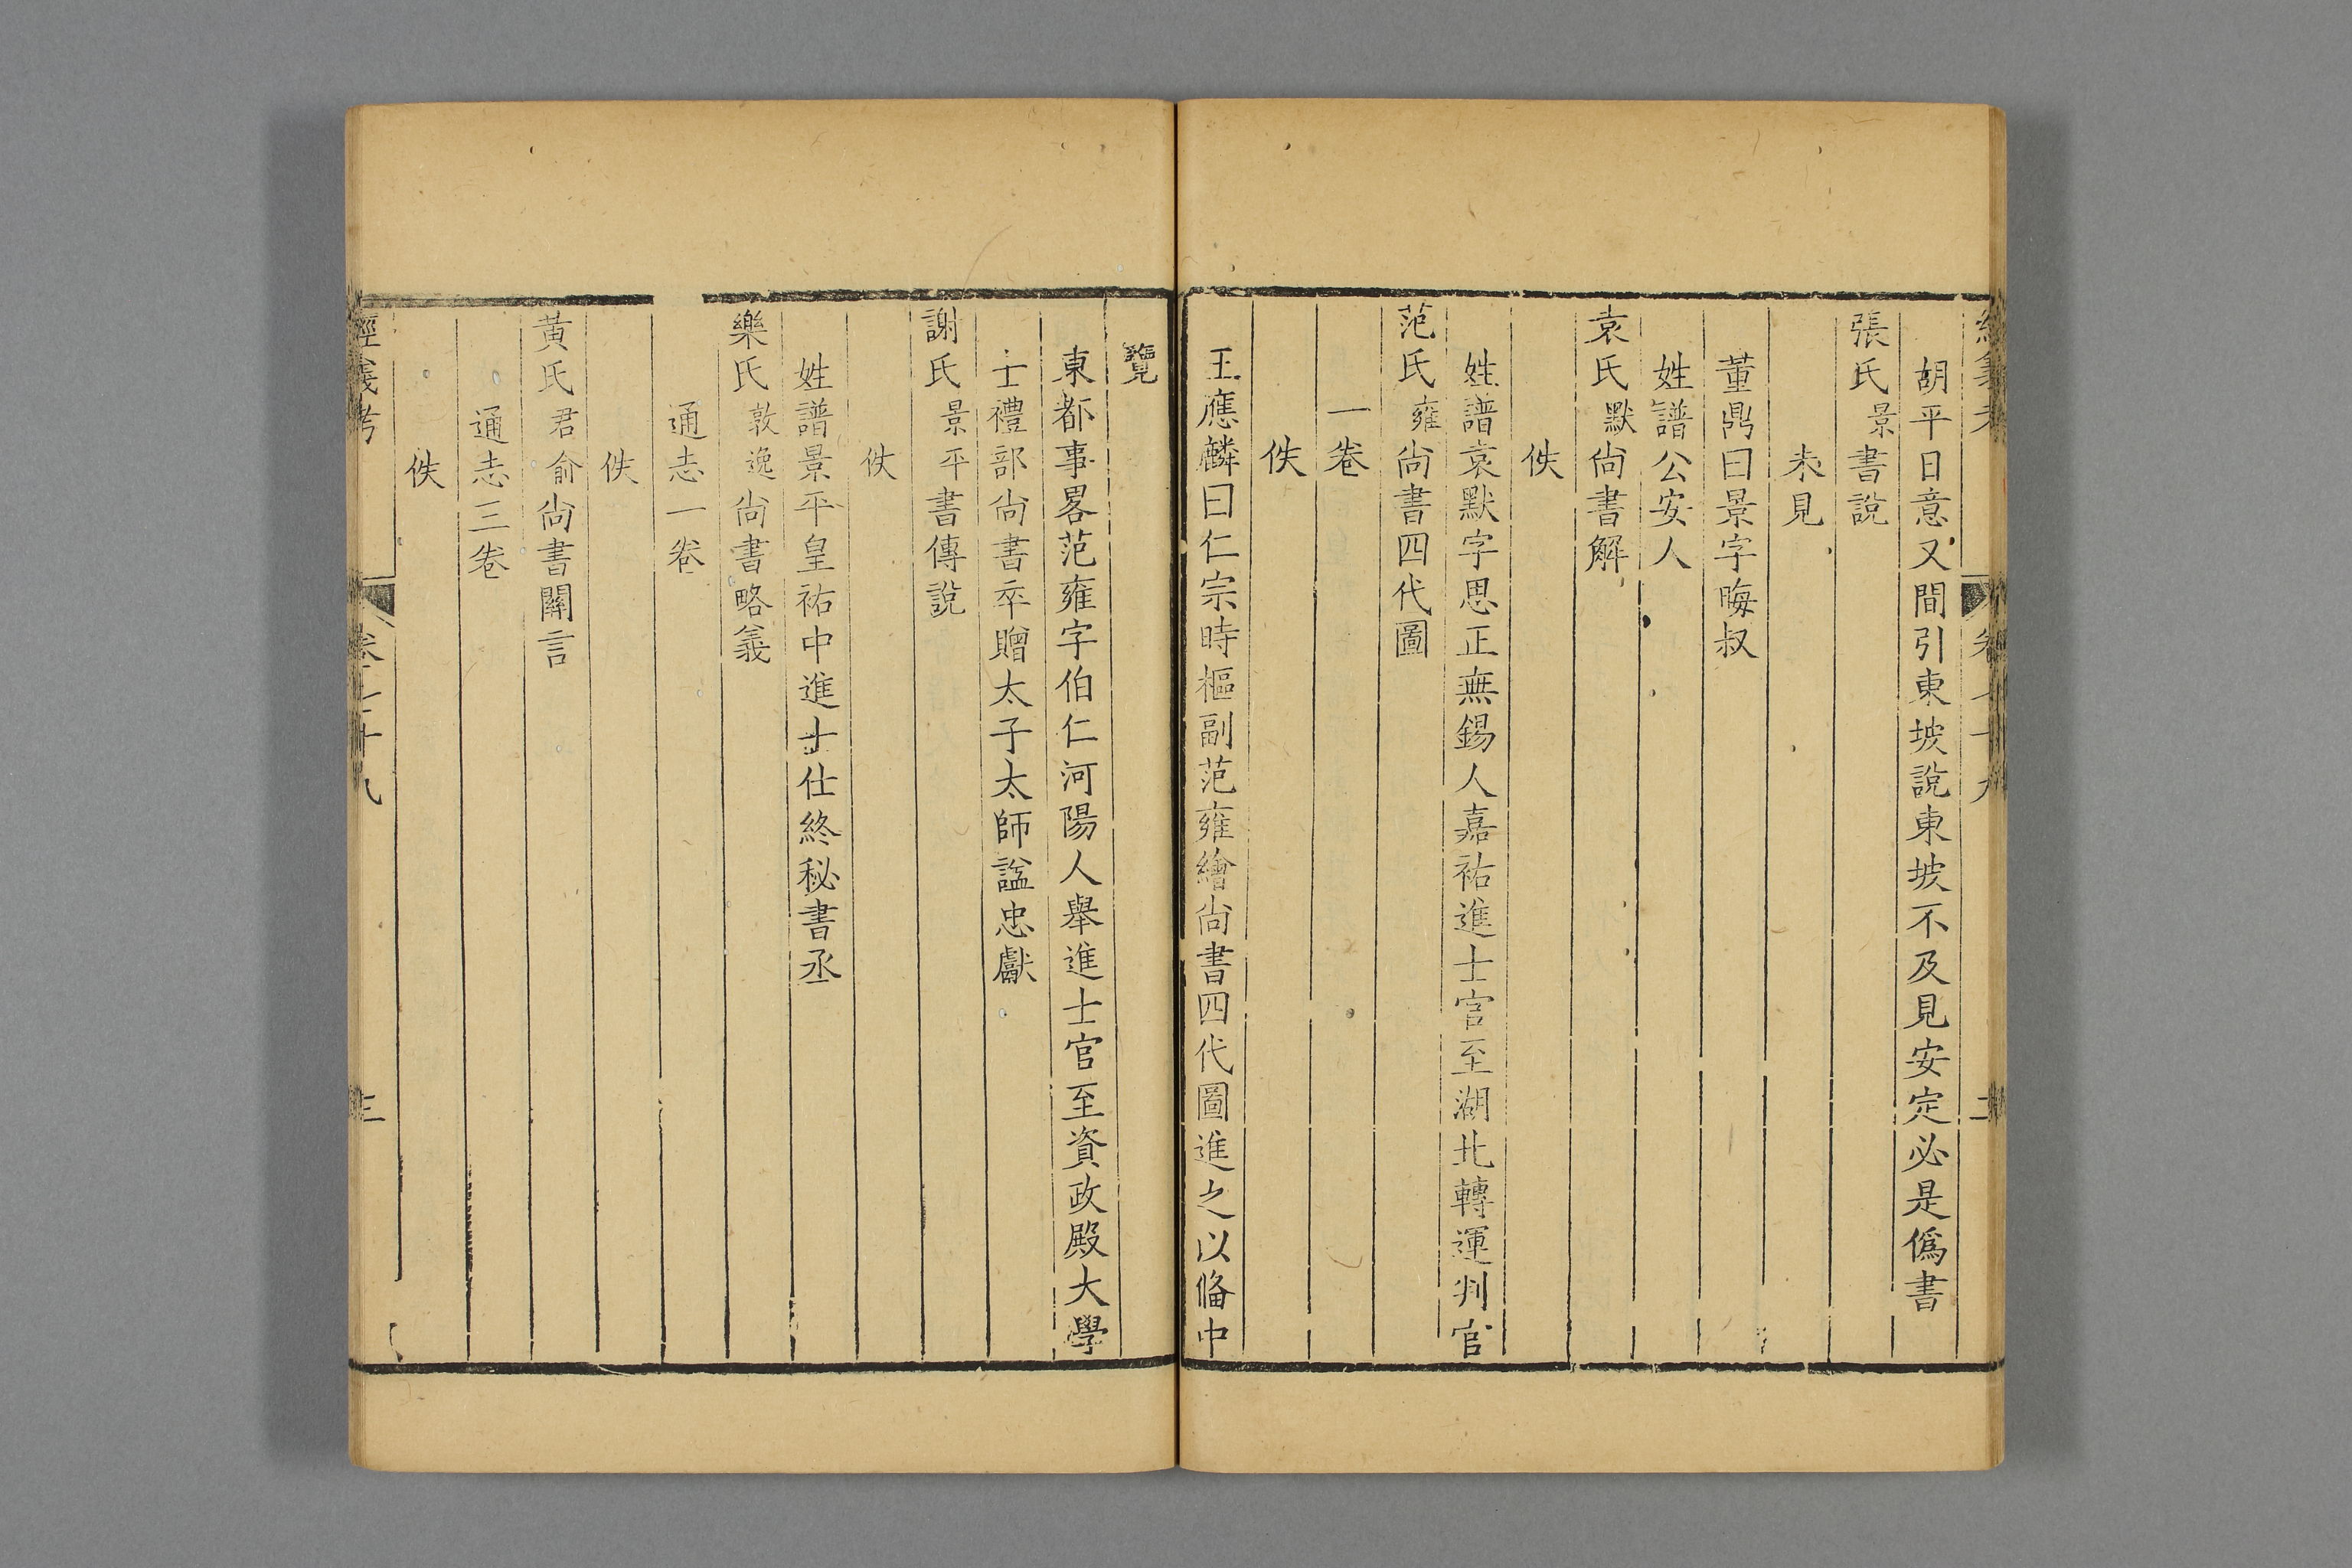 胡平日意又間引東坡說東坡不及見安定必是僞書
張氏景書說
未見
董鼎曰景字晦叔
姓譜公安人
袁氏默尚書解
佚
姓譜袁默字思正無錫人嘉祐進士官至湖北轉運判官
范氏雍尚書四代圖
一卷
佚
王應麟曰仁宗時樞副范雍繪尚書四代圖進之以俻中
覽
東都事畧范雍字伯仁河陽人舉進士官至資政殿大學
士禮部尚書卒贈太子太師諡忠獻
謝氏景平書傳說
佚
姓譜景平皇祐中進士仕終秘書丞
樂氏敦逸尚書略義
通志一卷
佚
黃氏君俞尚書關言
通志三卷
佚
經義考 卷七十九 三